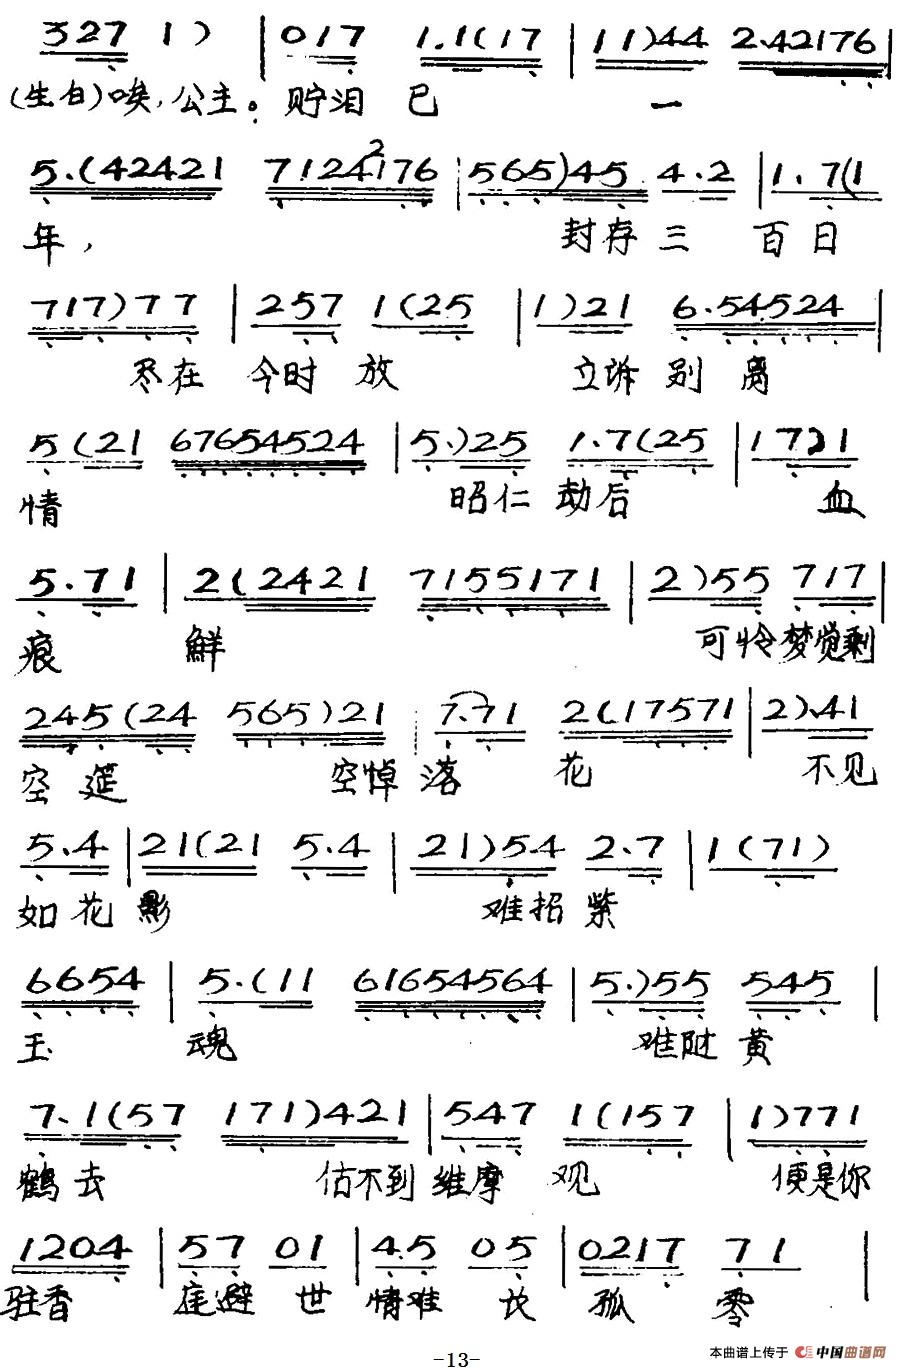 327 1 ) | 017 1.1(17 | 11)44 2.42176 |
(生白)唉,公主。贮泪已一
5.(42421 7124176 2 | 565)45 4.2 | 1.7(1
年, 封存三百日
717)77 | 257 1(25 | 1)21 6.54524 |
尽在今时放 立诉别离
5(21 67654524 | 5.)25 1.7(25 | 1721
情 昭仁劫后 血
5.71 | 2(2421 7155171 | 2)55 717 |
痕 鲜 可怜梦觉剩
245(24 565)21 | 7.71 2(.17571 | 2).41
空筵 空悼落花 不见
5.4 | 21(21 5.4 | 21)5.4 2.7 | 1(71)
如花影 难招紫
6654 | 5.(11 61654564 | 5.)55 545 |
玉 魂 难随黄
7.1(57 171)421 | 547 1(157 | 1)771
鹤去 估不到维摩观 便是你
1204 | 57 01 | 4.5 05 | 0217 71 |
驻香 庵避世情难 孤零
-13-
本曲谱上传于 中国曲谱网